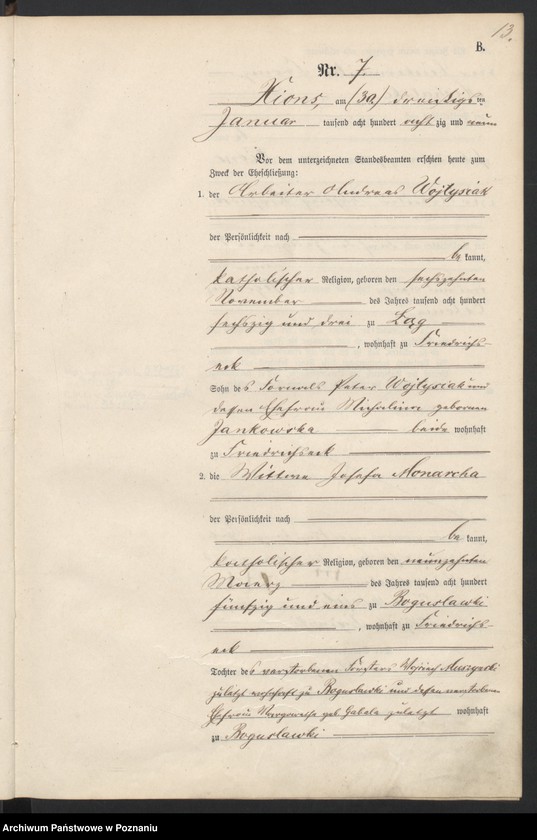 13.
B.
Nr. 7.
Xions, am (30) dreißigsten
Januar tausend acht hundert achtzig und neun
Vor dem unterzeichneten Standesbeamten erschien heute zum
Zweck der Eheschließung:
1. der Arbeiter Andreas Wojtysiak
der Persönlichkeit nach
be kannt,
katholischer Religion, geboren den sechszehnten
November des Jahres tausend acht hundert
sechszig und drei zu Łąg
, wohnhaft zu Friedrichs-
eck
Sohn des Fornals Peter Wojtysiak und
dessen Ehefrau Michalina geborenen
Jankowska beide wohnhaft
zu Friedrichseck
2. die Wittwe Josefa Monarcha
der Persönlichkeit nach
be kannt,
katholischer Religion, geboren den neunzehnten
Maerz des Jahres tausend acht hundert
fünfzig und eins zu Boguslawki
, wohnhaft zu Friedrichs-
eck
Tochter des verstorbenen Försters Wojciech
zuletzt wohnhaft zu Boguslawki und dessen verstorbenen
Ehefrau geb Gabala zuletzt wohnhaft
zu Boguslawki
Archiwum Państwowe w Poznaniu